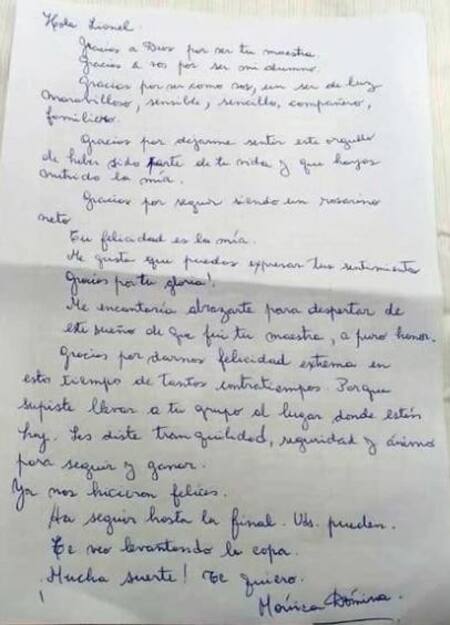 Hola Lionel.
Gracias a Dios por ser tu maestra.
Gracias a vos por ser mi alumno.
Gracias por ser como sos, un ser de luz
maravilloso, sensible, sencillo, compañero,
familiero.
Gracias por dejarme sentir este orgullo
de haber sido parte de tu vida y que hayas
nutrido la mía.
Gracias por seguir siendo un rosarino
neto
Tu felicidad es la mía.
Me gusta que puedas expresar tus sentimientos
Gracias por tu gloria!.
Me encantaría abrazarte para despertar de
este sueño de que fui tu maestra, a puro honor.
Gracias por darnos felicidad extrema en
este tiempo de tantos contratiempos. Porque
supiste llevar a tu grupo al lugar donde están
hoy. Les diste tranquilidad, seguridad y ánimo
para seguir y ganar.
Ya nos hicieron felices.
Ha seguir hasta la final. Uds. pueden.
Te veo levantando la copa.
¡Mucha suerte! Te quiero.
Mónica Dómina.